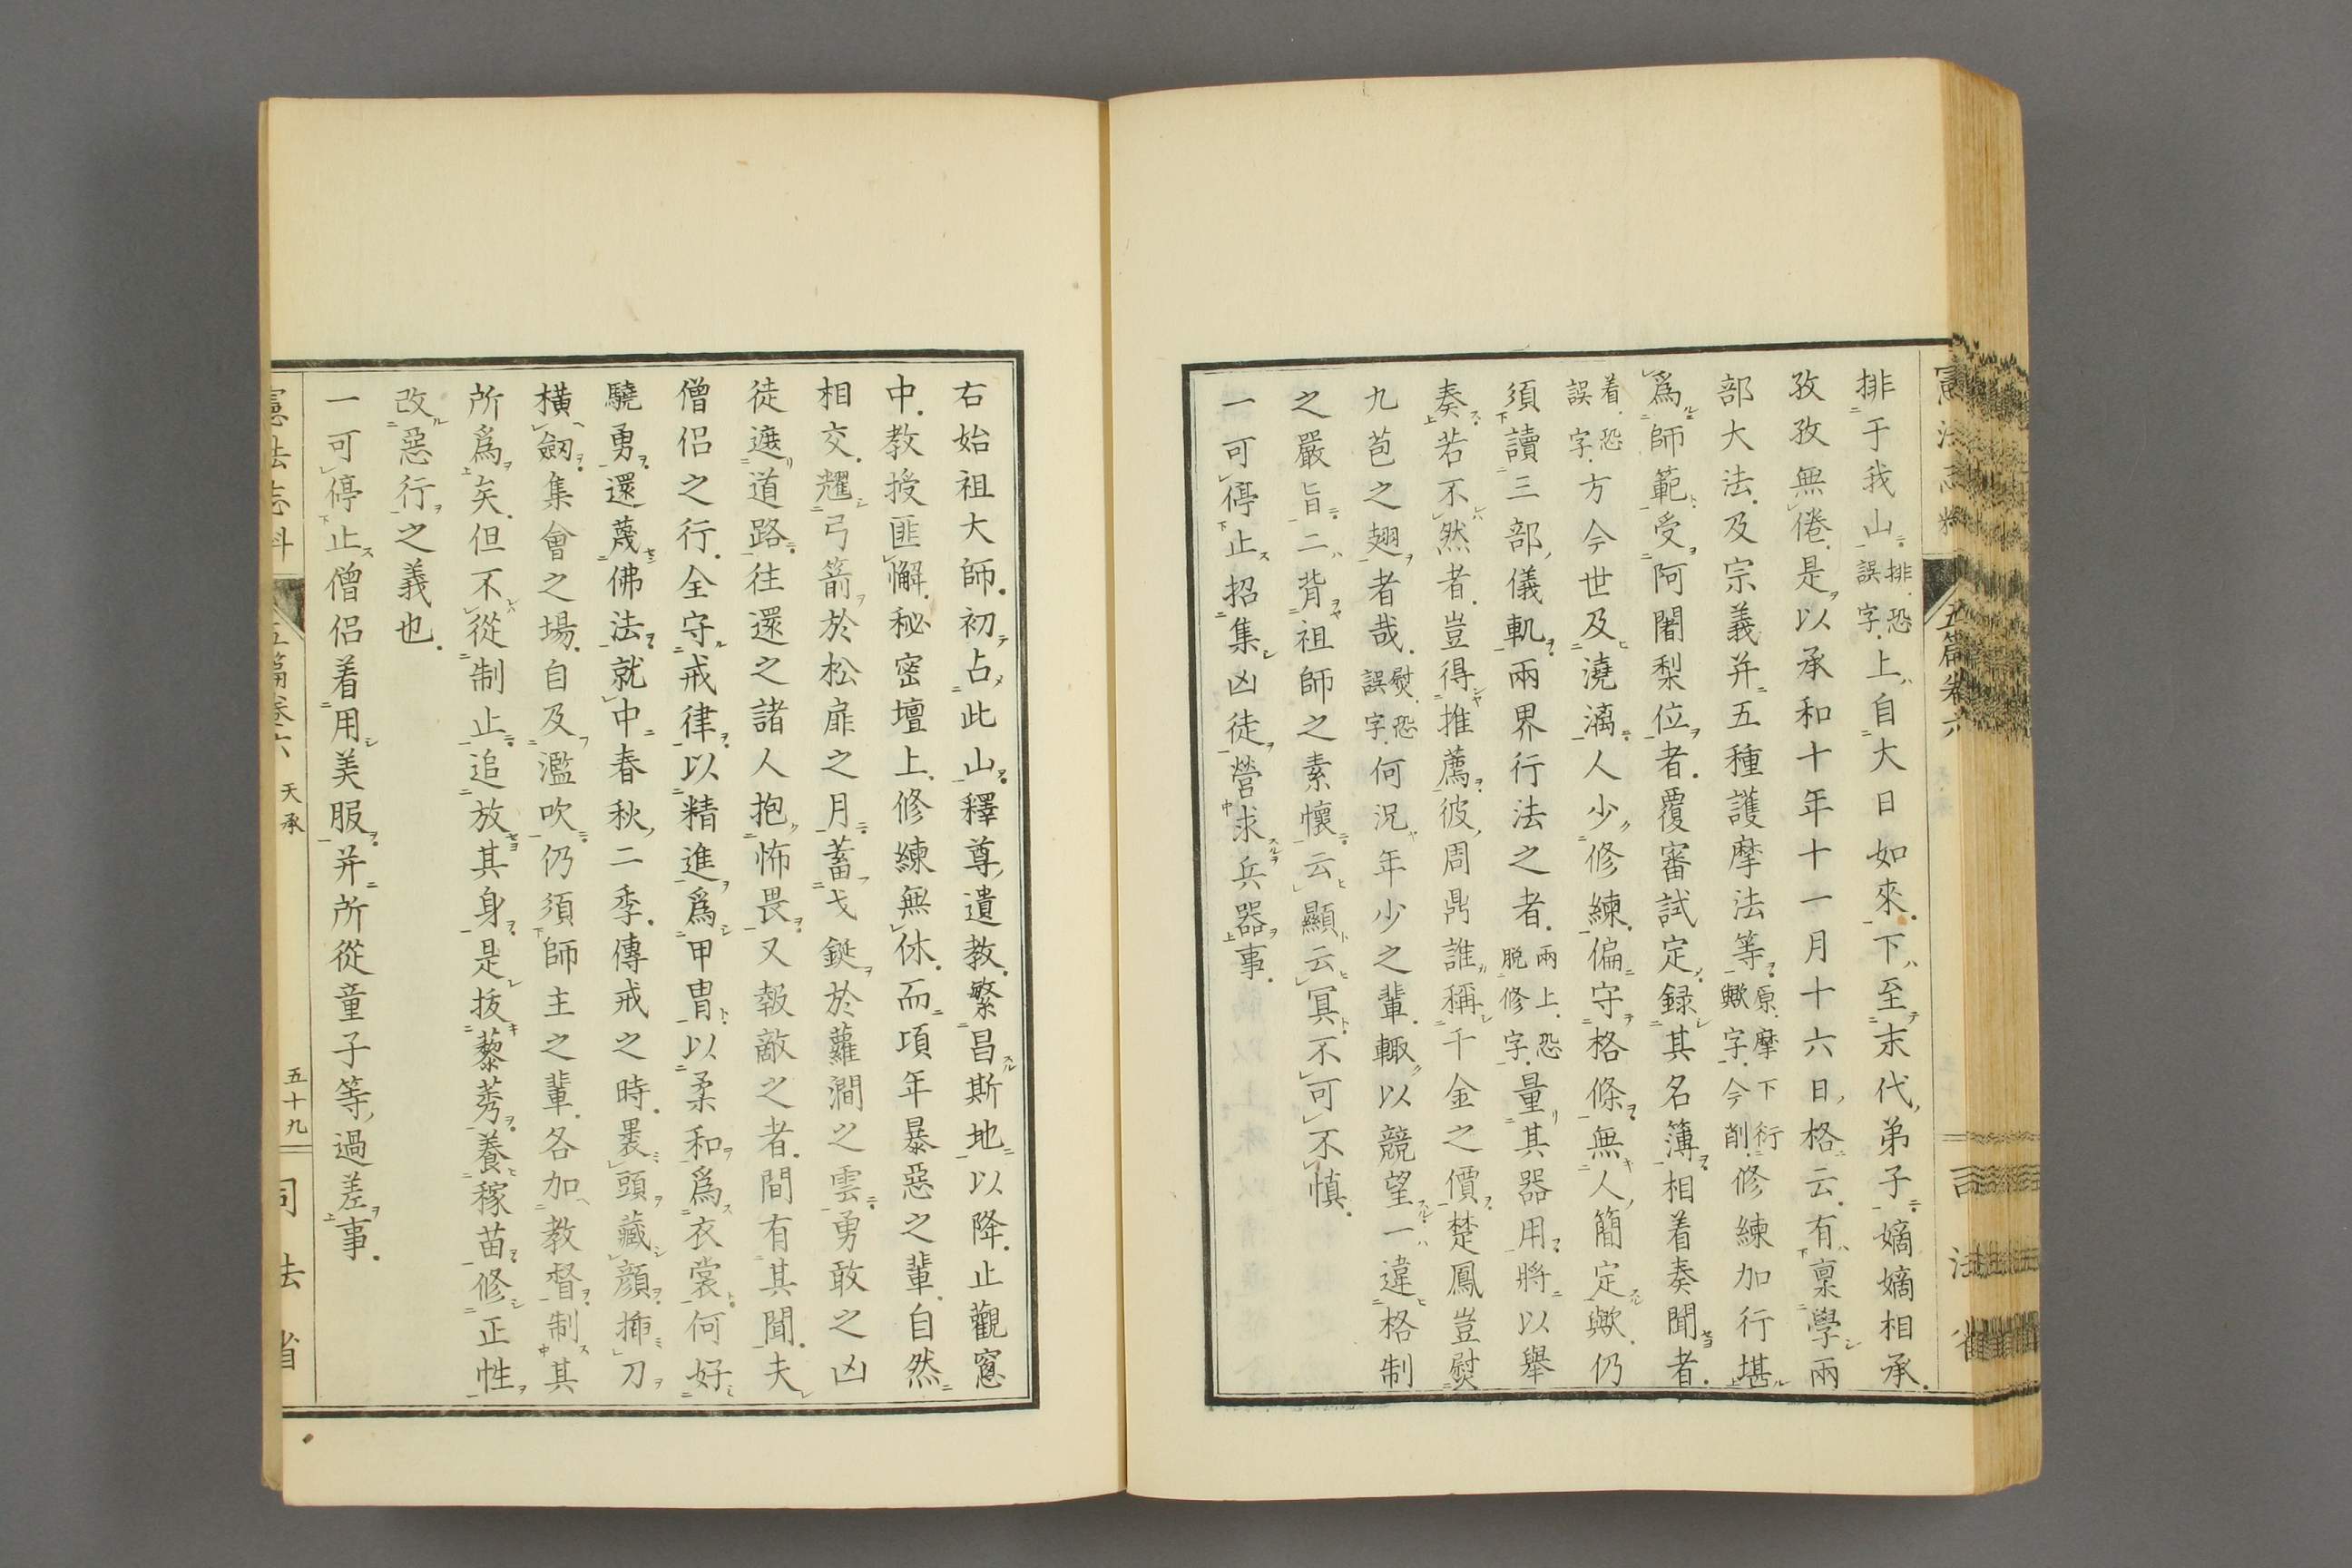 排于我山排恐誤字上自大日如來下至末代弟子嫡嫡相承
孜孜無倦是以承和十年十一月十六日格云有稟學兩
部大法及宗義并五種護摩法等原摩下衍歟字今削修練加行堪
爲師範受阿闍梨位者覆審試定録其名簿相着奏聞者
着恐誤字方今世及澆漓人少修練偏守格條無人簡定歟仍
須讀三部儀軌兩界行法之者兩上恐脱修字量其器用將以舉
奏若不然者豈得推薦彼周鼎誰稱千金之價楚鳳豈熨
九苞之翅者哉熨恐誤字何況年少之輩輙以競望一違格制
之嚴旨二背祖師之素懷云顯云冥不可不慎
一可停止招集凶徒營求兵器事
右始祖大師初占此山釋尊遺教繁昌斯地以降止觀窓
中教授匪懈秘密壇上修練無休而項年暴惡之輩自然
相交耀弓箭於松扉之月蓄戈鋋於蘿澗之雲勇敢之凶
徒遮道路往還之諸人抱怖畏又報敵之者間有其聞夫
僧侶之行全守戒律以精進爲甲冑以柔和爲衣裳何好
驍勇還蔑佛法就中春秋二季傳戒之時褁頭藏顔揷刀
横劒集會之場自及濫吹仍須師主之輩各加教督制其
所爲矣但不從制止追放其身是拔藜莠養稼苗修正性
改惡行之義也
一可停止僧侶着用美服并所從童子等過差事
憲法志料 五篇卷六 天承 五十九 司法省